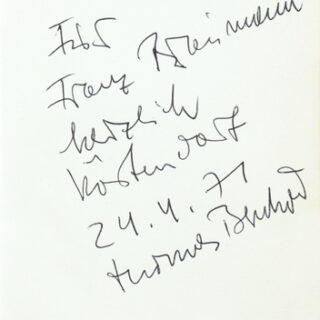 Für
Franz Braumann
herzlich
Köstendorf
24.4.71
Thomas Bernhard